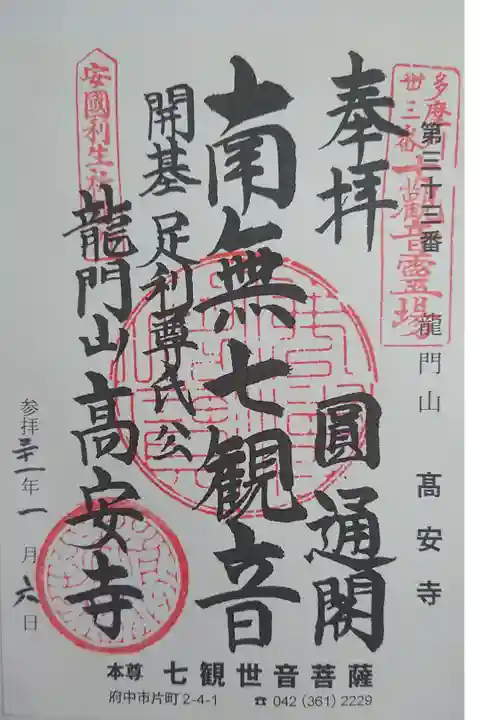 多摩
卅三番
十一觀音霊場
第三十三番 龍門山 高安寺
奉拝 圓通閣
南無七観音
開基 足利尊氏公
安國利生社
龍門山高安寺
参拝三十一年一月六日
本尊 七観世音菩薩
府中市片町2-4-1 ☎ 042 (361) 2229